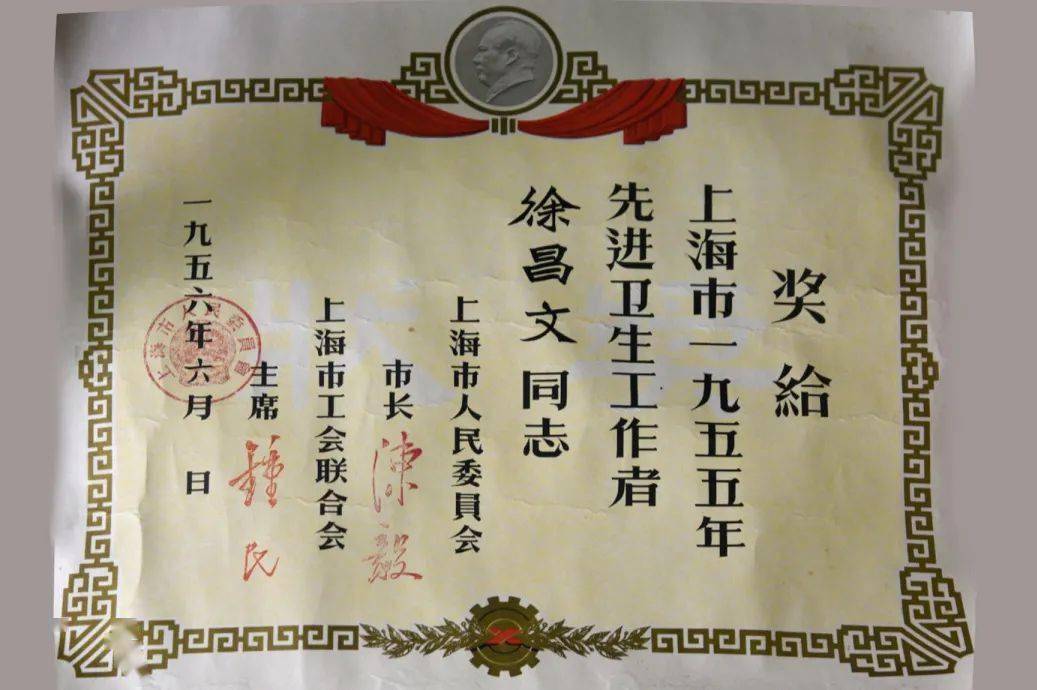 奖給
上海市一九五五年
先进卫生工作者
徐昌文同志
上海市人民委員会
市长 陈毅
上海市工会联合会
主席 鍾民
一九五六年六月 日
上海市人民委員會